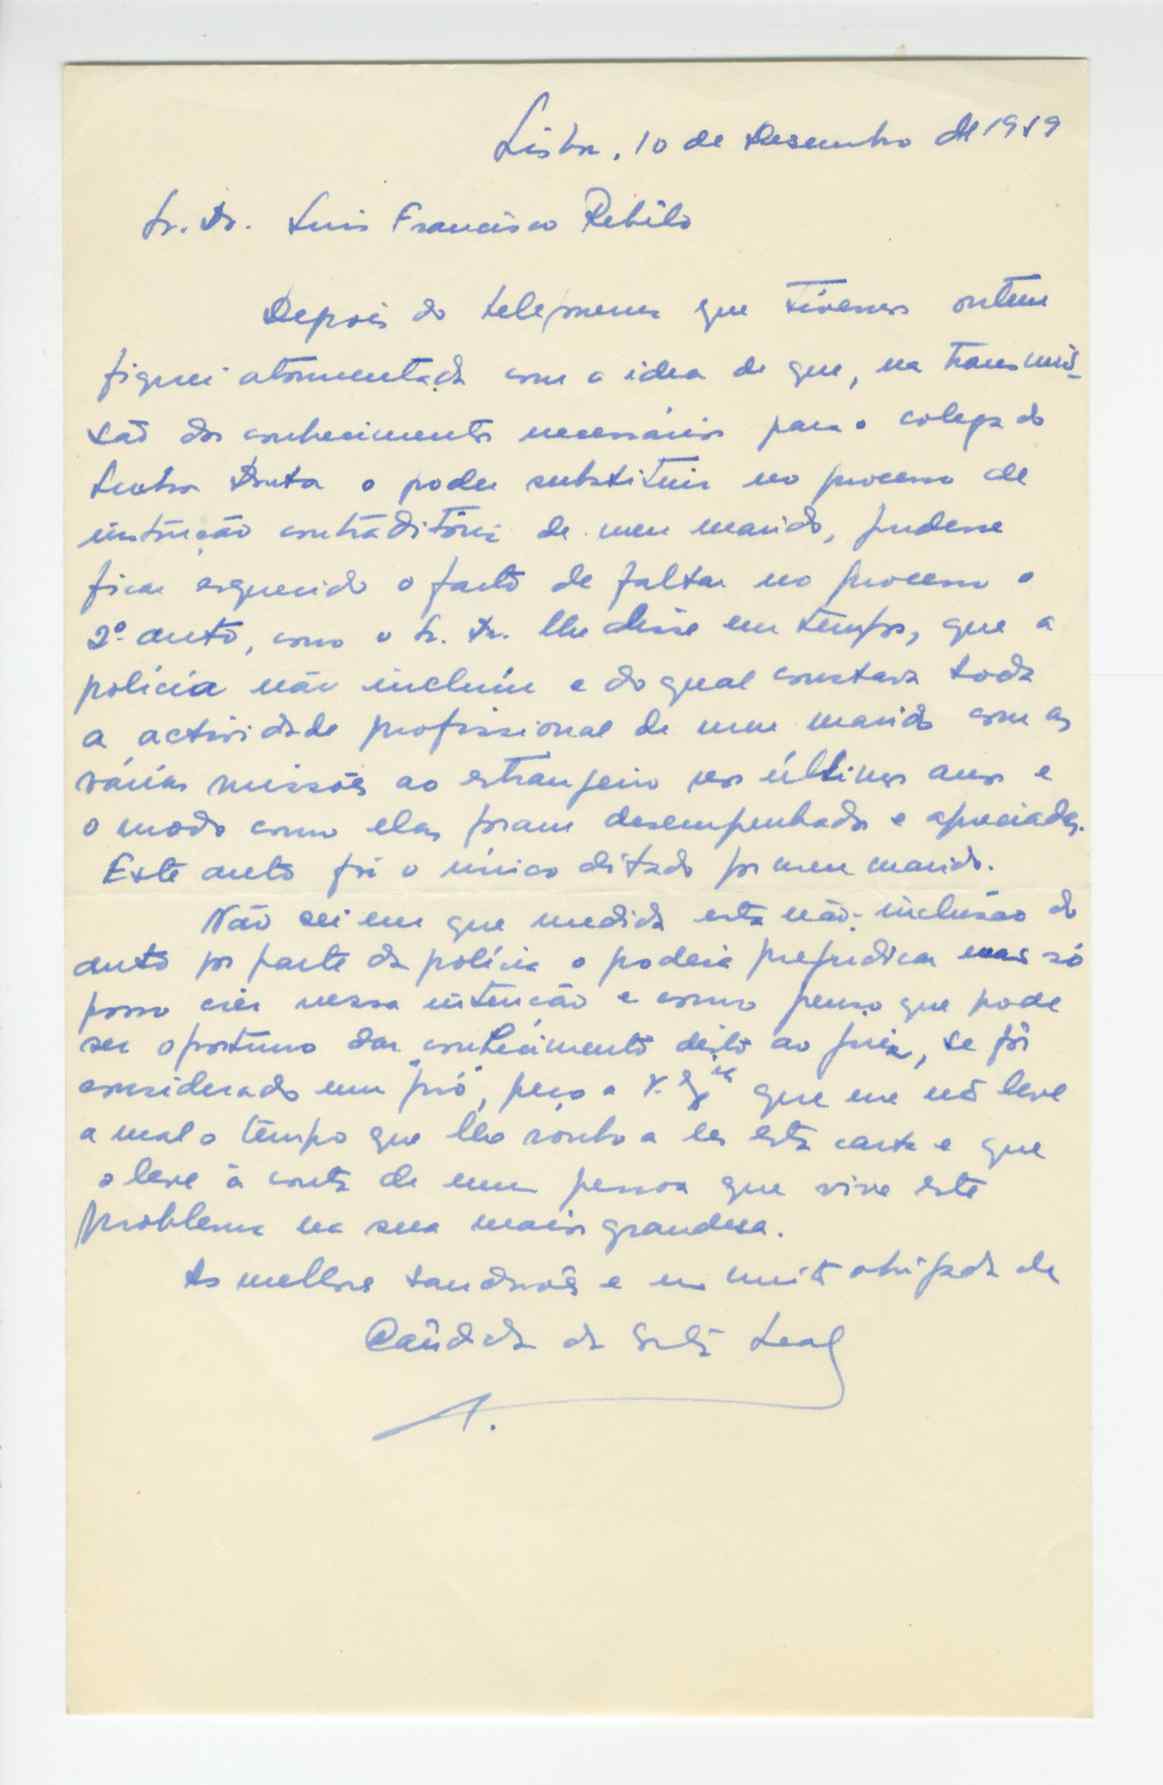 Lisboa, 10 de Dezembro de 1959
Sr. Dr. Luis Francisco Rebêlo
Depois do telefonema que tivemos ontem
fiquei atormentada com a idea de que, na transmis-
são dos conhecimentos necessários para o colega do
Senhor Doutor o poder substituir no processo de
instrução contraditória de meu marido, pudesse
ficar esquecido o facto de faltar no processo o
2º auto, como o Sr. Dr. lhe disse em tempos, que a
polícia não incluiu e do qual constava toda
a actividade profissional de meu marido com as
várias missões ao estrangeiro nos últimos anos e
o modo como elas foram desempenhadas e apreciadas.
Este auto foi o único ditado por meu marido.
Não sei em que medida esta não-inclusão do
auto por parte da polícia o poderá prejudicar mas só
posso crer nessa intenção e como penso que pode
ser oportuno dar conhecimento disto ao juiz, se fôr
considerado um "pró", peço a V. Exª que me não leve
a mal o tempo que lhe roubo a ler esta carta e que
o leve à conta de uma pessoa que vive este
problema na sua maior grandeza.
As melhores saudações e um muito obrigada da
Cândida da Leal